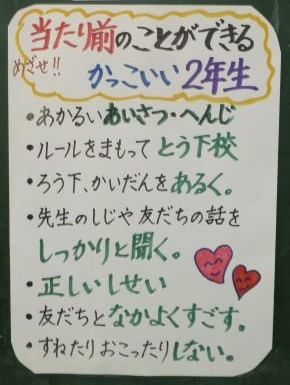 当たり前のことができる
めざせ!!
かっこいい2年生
•あかるいあいさつ・へんじ
•ルールをまもってとう下校
•ろう下、かいだんをあるく。
•先生のしじや友だちの話を
しっかりと聞く。
•正しいしせい
•友だちとなかよくすごす。
•すねたりおこったりしない。